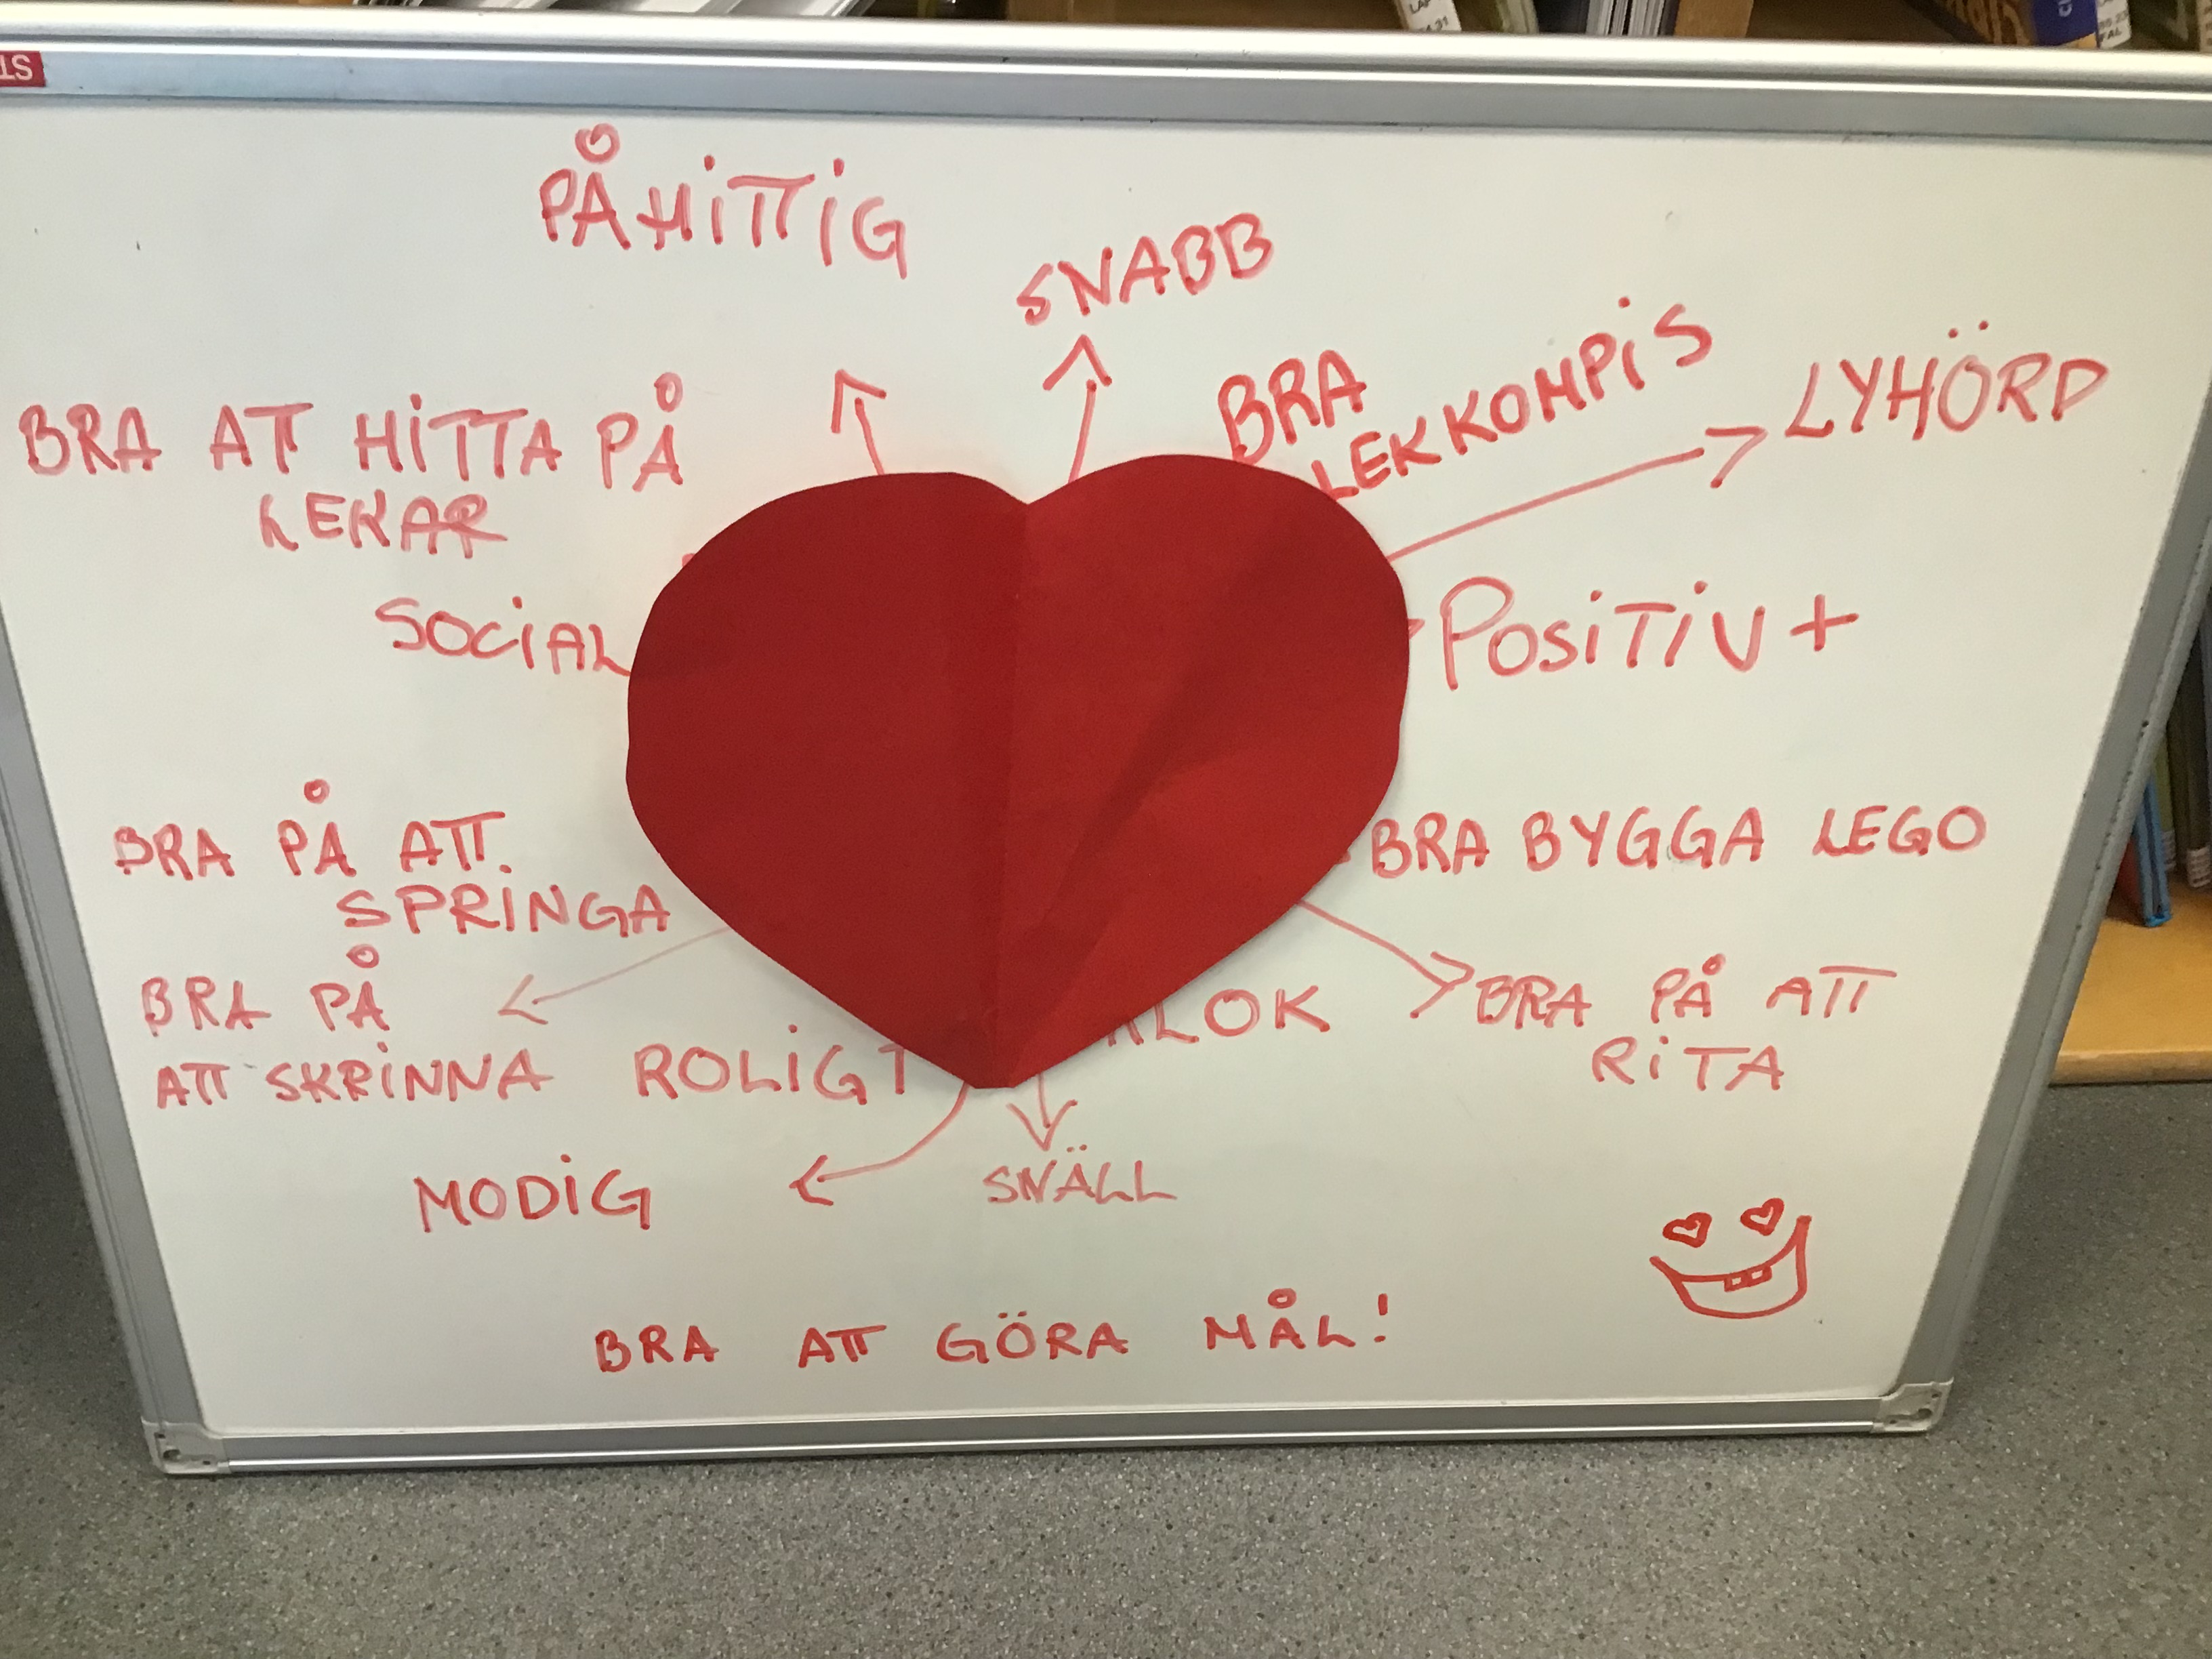 PÅHITTIG
SNABB
BRA
LEKKOMPIS
LYHÖRD
BRA ATT HITTA PÅ
LEKAR
SOCIAL
POSITIV +
BRA PÅ ATT
SPRINGA
BRA BYGGA LEGO
BRA PÅ
ATT SKRINNA
ROLIGT
BRA PÅ ATT
RITA
MODIG
SNÄLL
BRA ATT GÖRA MÅL!